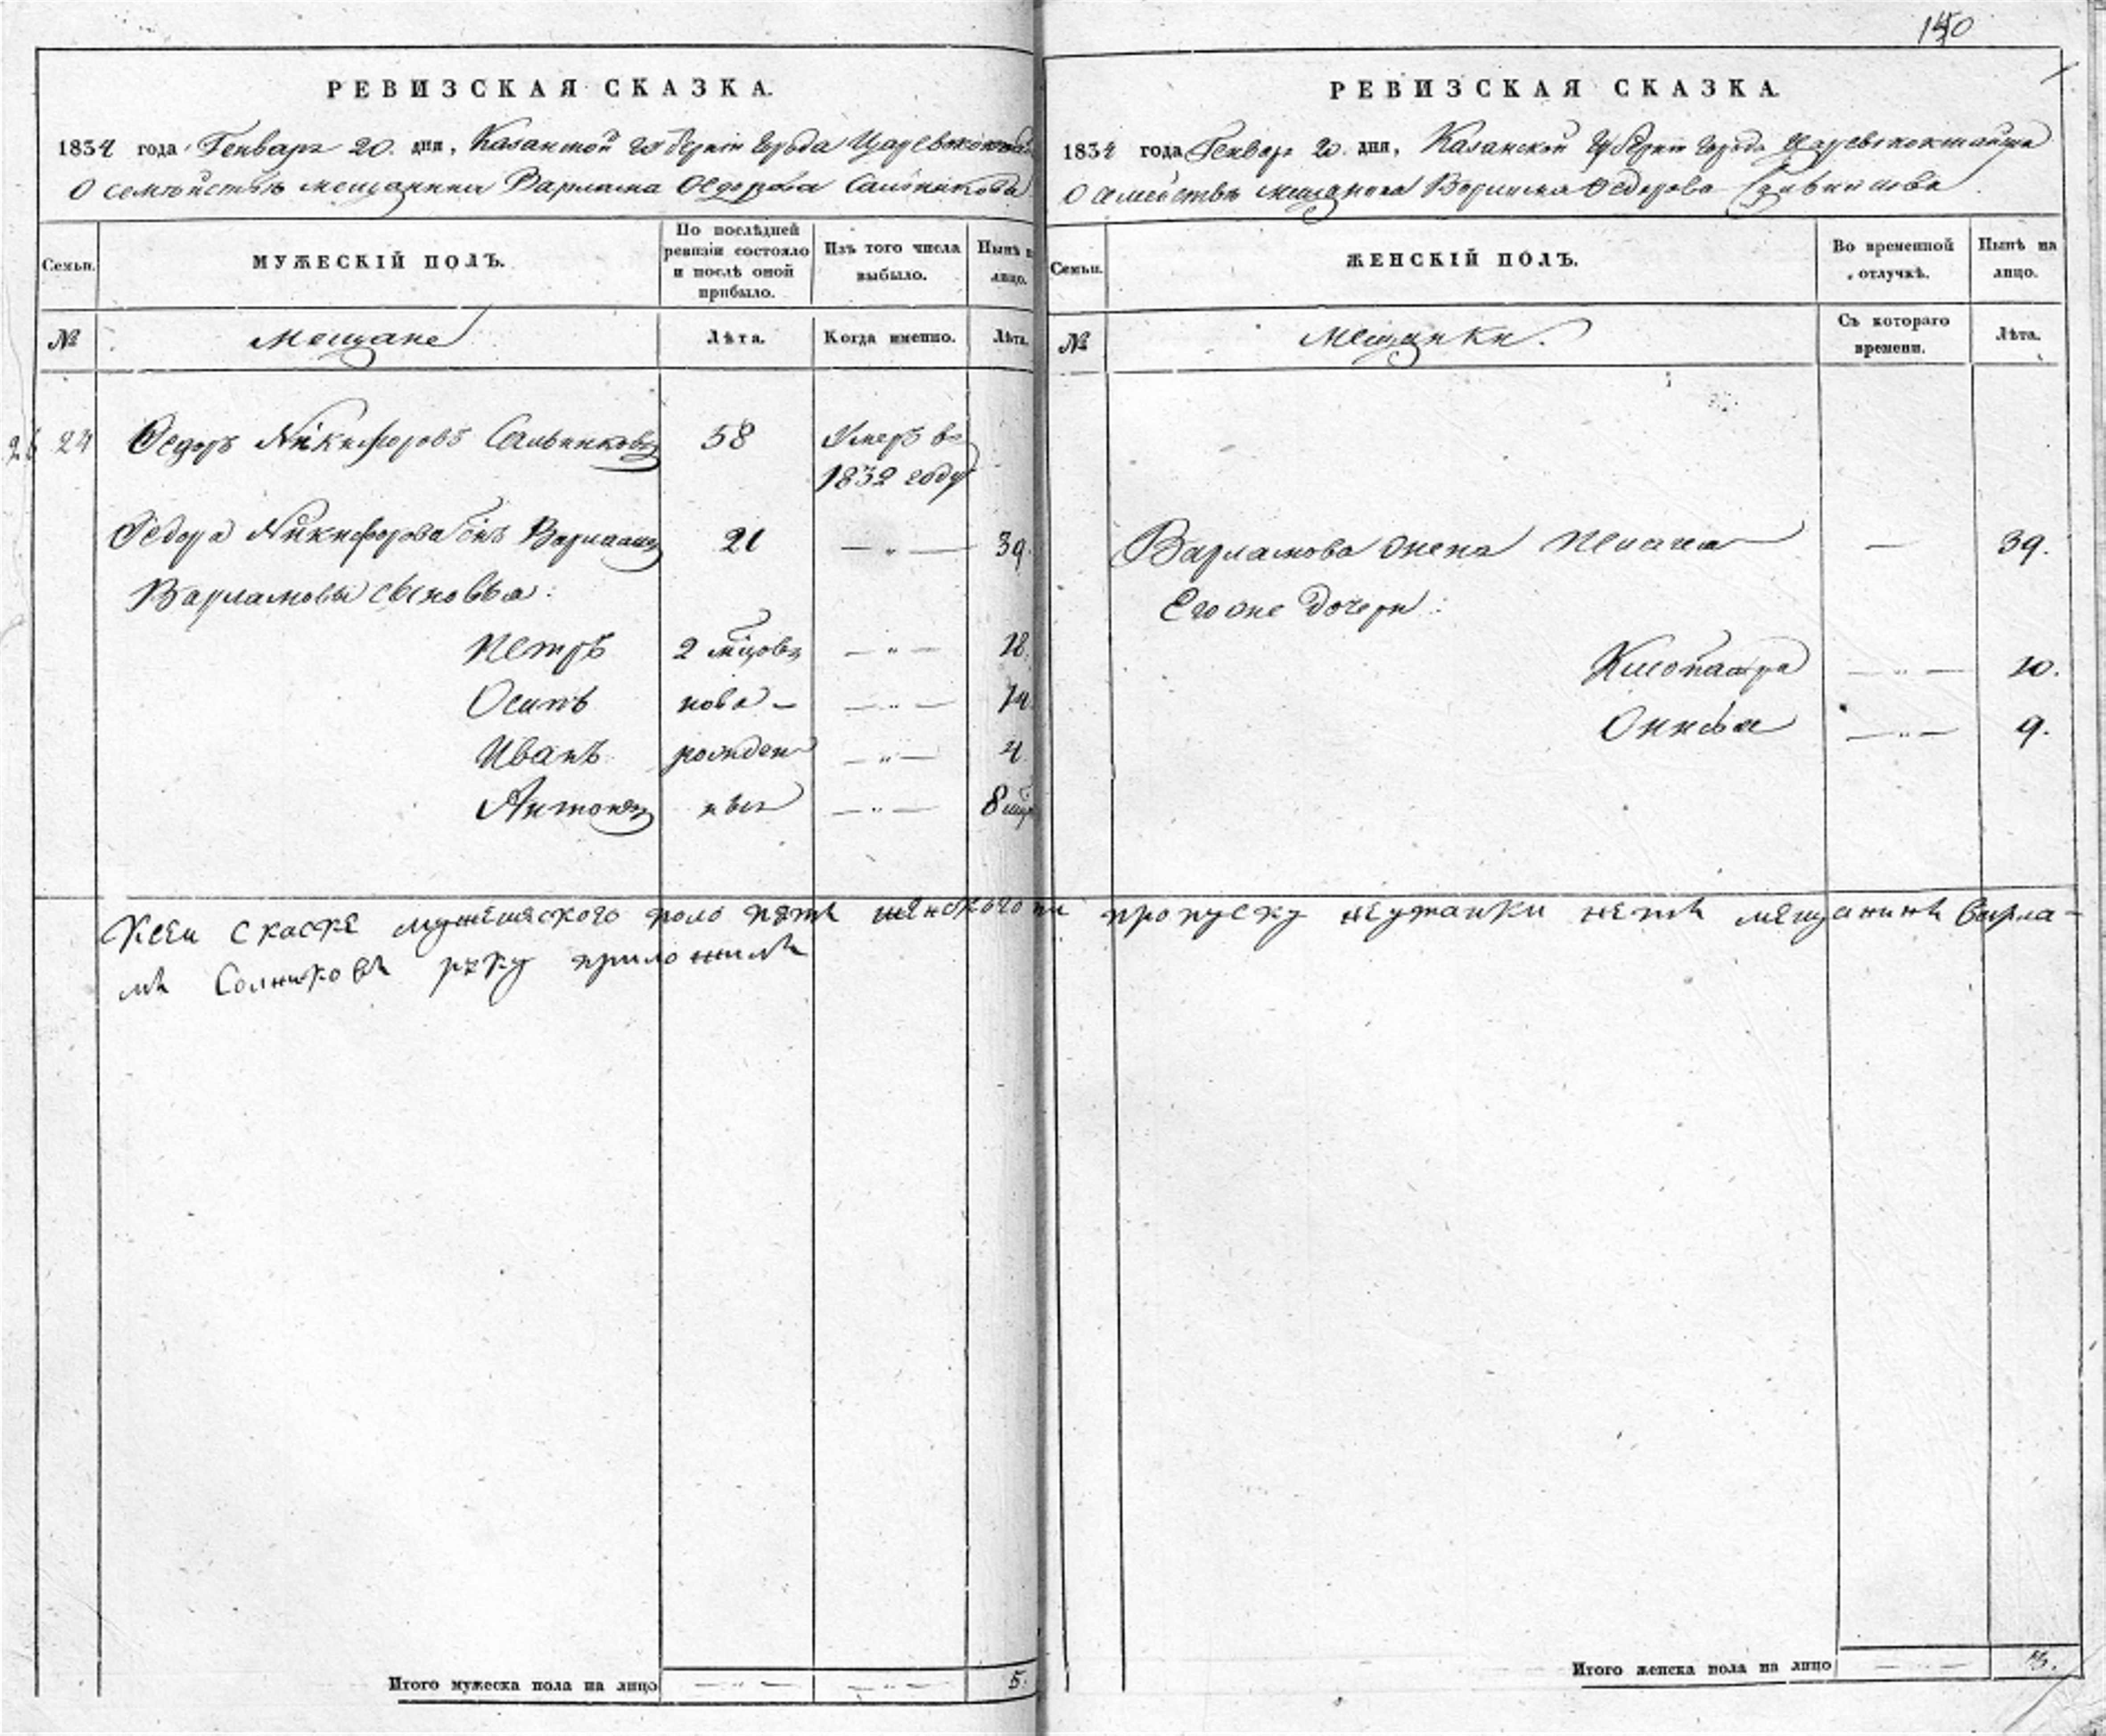 150
РЕВИЗСКАЯ СКАЗКА.
1834 года Генваря 20. дня, Казанской губернии города Царевококшайска
О семействе мещанина Варлама Федорова Сальникова
Семьи.
МУЖЕСКІЙ ПОЛЪ.
По послѣдней ревизіи состояло и послѣ оной прибыло.
Изъ того числа выбыло.
Нынѣ на лицо.
№
Мещане
Лѣта.
Когда именно.
Лѣта.
24 Федоръ Никифоровъ Сальниковъ 58 Умеръ въ
1832 году
Федора Никифорова сынъ Варламъ 21 — „ — 39.
Варламовы сыновья:
Петръ 2 мѣцовъ — „ — 18.
Осипъ ново — — „ — 14.
Иванъ рожден — „ — 4
Антонъ ныя — „ — 8 мѣц
Ксеи скаске мужеского поло пять женскаго
мъ Солниковъ руку приложилъ
Итого мужеска пола на лицо — „ — — „ — 5.
РЕВИЗСКАЯ СКАЗКА.
1834 года Генваря 20. дня, Казанской губернии города Царевококшайска
О семействе мещанина Варлама Федорова Сальникова.
Семьи.
ЖЕНСКІЙ ПОЛЪ.
Во временной отлучкѣ.
Нынѣ на лицо.
№
Мещанки.
Съ котораго времени.
Лѣта.
Варламова жена Пелагея — 39.
Его же дочери:
Клеопатра — „ — 10.
— „ — 9.
пропуску нетъ мещанинъ Варла-
Итого женска пола на лицо — „ — 3.